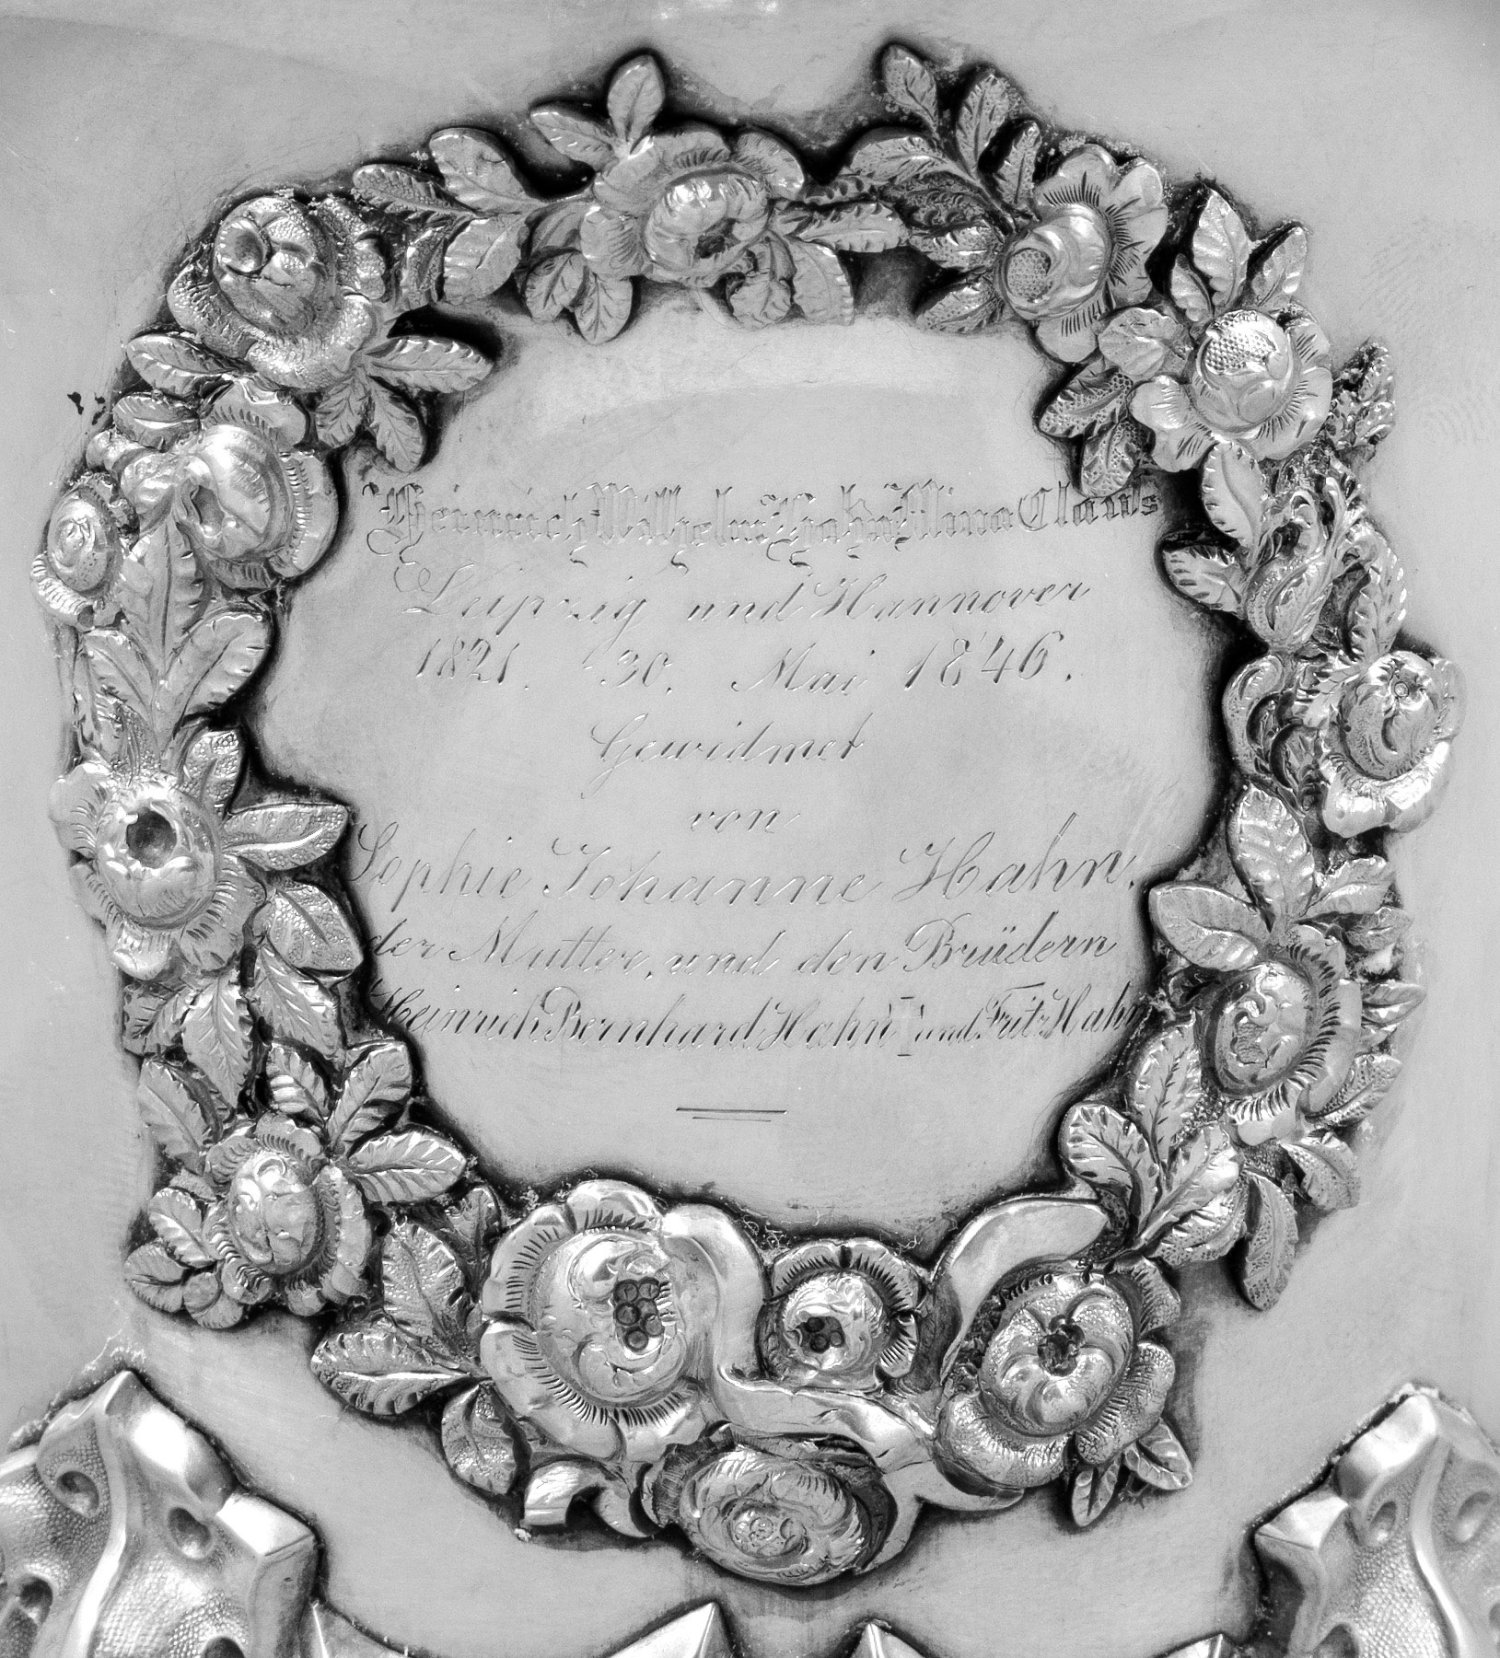 Heinrich Wilhelm Hahn Mina Claus
Leipzig und Hannover
1821. 30. Mai 1846.
Gewidmet
von
Sophie Johanne Hahn,
der Mutter, und den Brüdern
Heinrich Bernhard Hahn I und Fritz Hahn